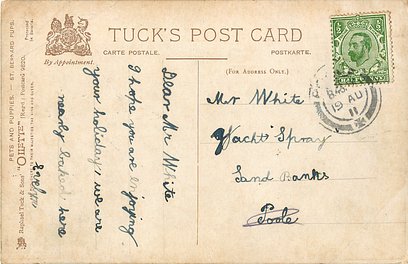 TUCK'S POST CARD
CARTE POSTALE.
POSTKARTE.
By Appointment.
(FOR ADDRESS ONLY.)
PETS AND PUPPIES. — ST. BERNARD PUPS.
"OILETTE" (Regd.) Postcard 9220.
Raphael Tuck & Sons'
Dear Mr White
I hope you are enjoying
your holidays, we are
nearly baked here
Evelyn
Mr White
Yacht Spray
Sand Banks
Poole
19 AU
11